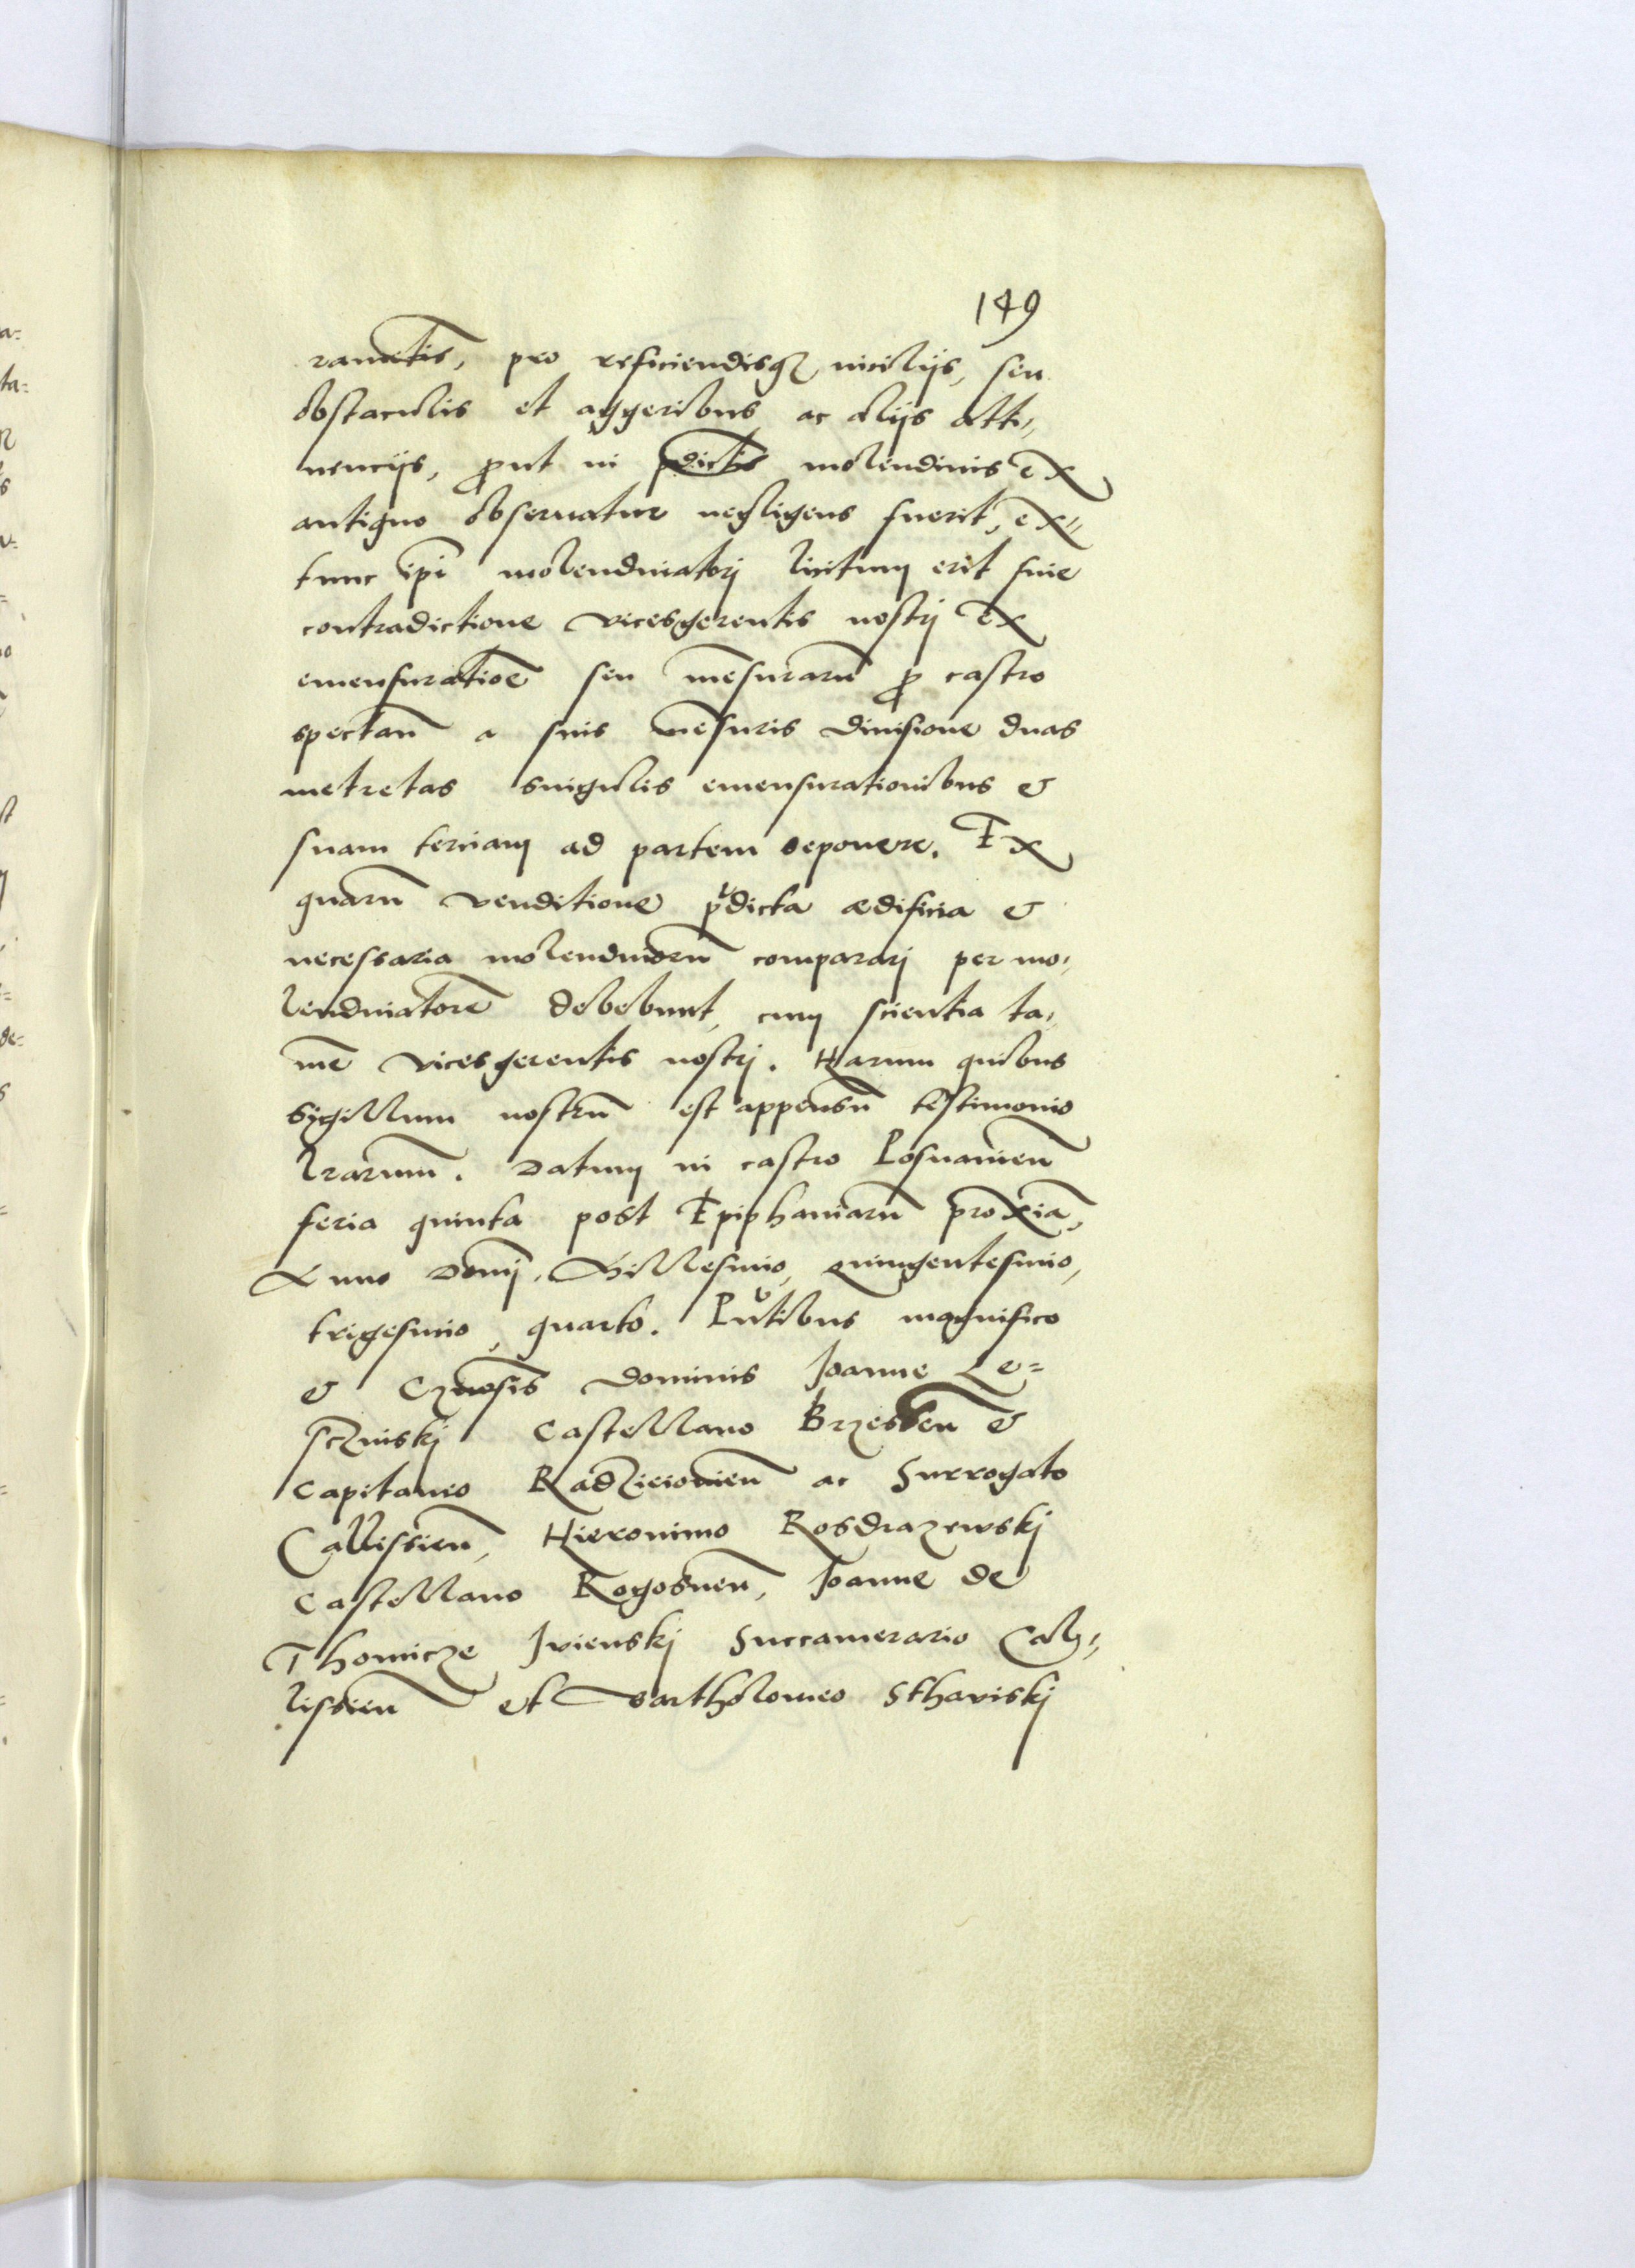 149
ramentis, pro reficiendisq nicilijs, seu
obstaculis et aggeribus ac alijs atti„
nencijs, prout in pdictis molendinis ex
antiquo obseruatur negligens fuerit, ex„
tunc ipi molendinatorj licitum erit sine
contradictione vicesgerentis nostrj Ex
emensuratioe seu mesuraru p castro
spectan a suis mesuris diuisione duas
metretas singulis emensurationibus &
suam terciam ad partem seponere. Ex
quaru venditione pdicta ædificia &
necessaria molendinoru compararj per mo„
lendinatore debebunt, cum scientia ta„
me vicesgerentis nostrj. Harum quibus
Sigillum nostru est appensu testimonio
lrarum. Datum in castro Posnanien
feria quinta post Epiphaniaru proxia,
Anno Domj. Millesimo, quingentesimo,
trigesimo, quarto. Pntibus magnifico
& Gnosis Dominis Joanne Le=
sczinskj Castellano Brzesten &
Capitaneo Radzieiouien ac Surrogato
Callissien, Hieronimo Rosdrazewskj
Castellano Rogosnen, Joanne de
Thomicze Iwienskj Succamerario Cal„
lissien et Bartholomeo Sthawiskj